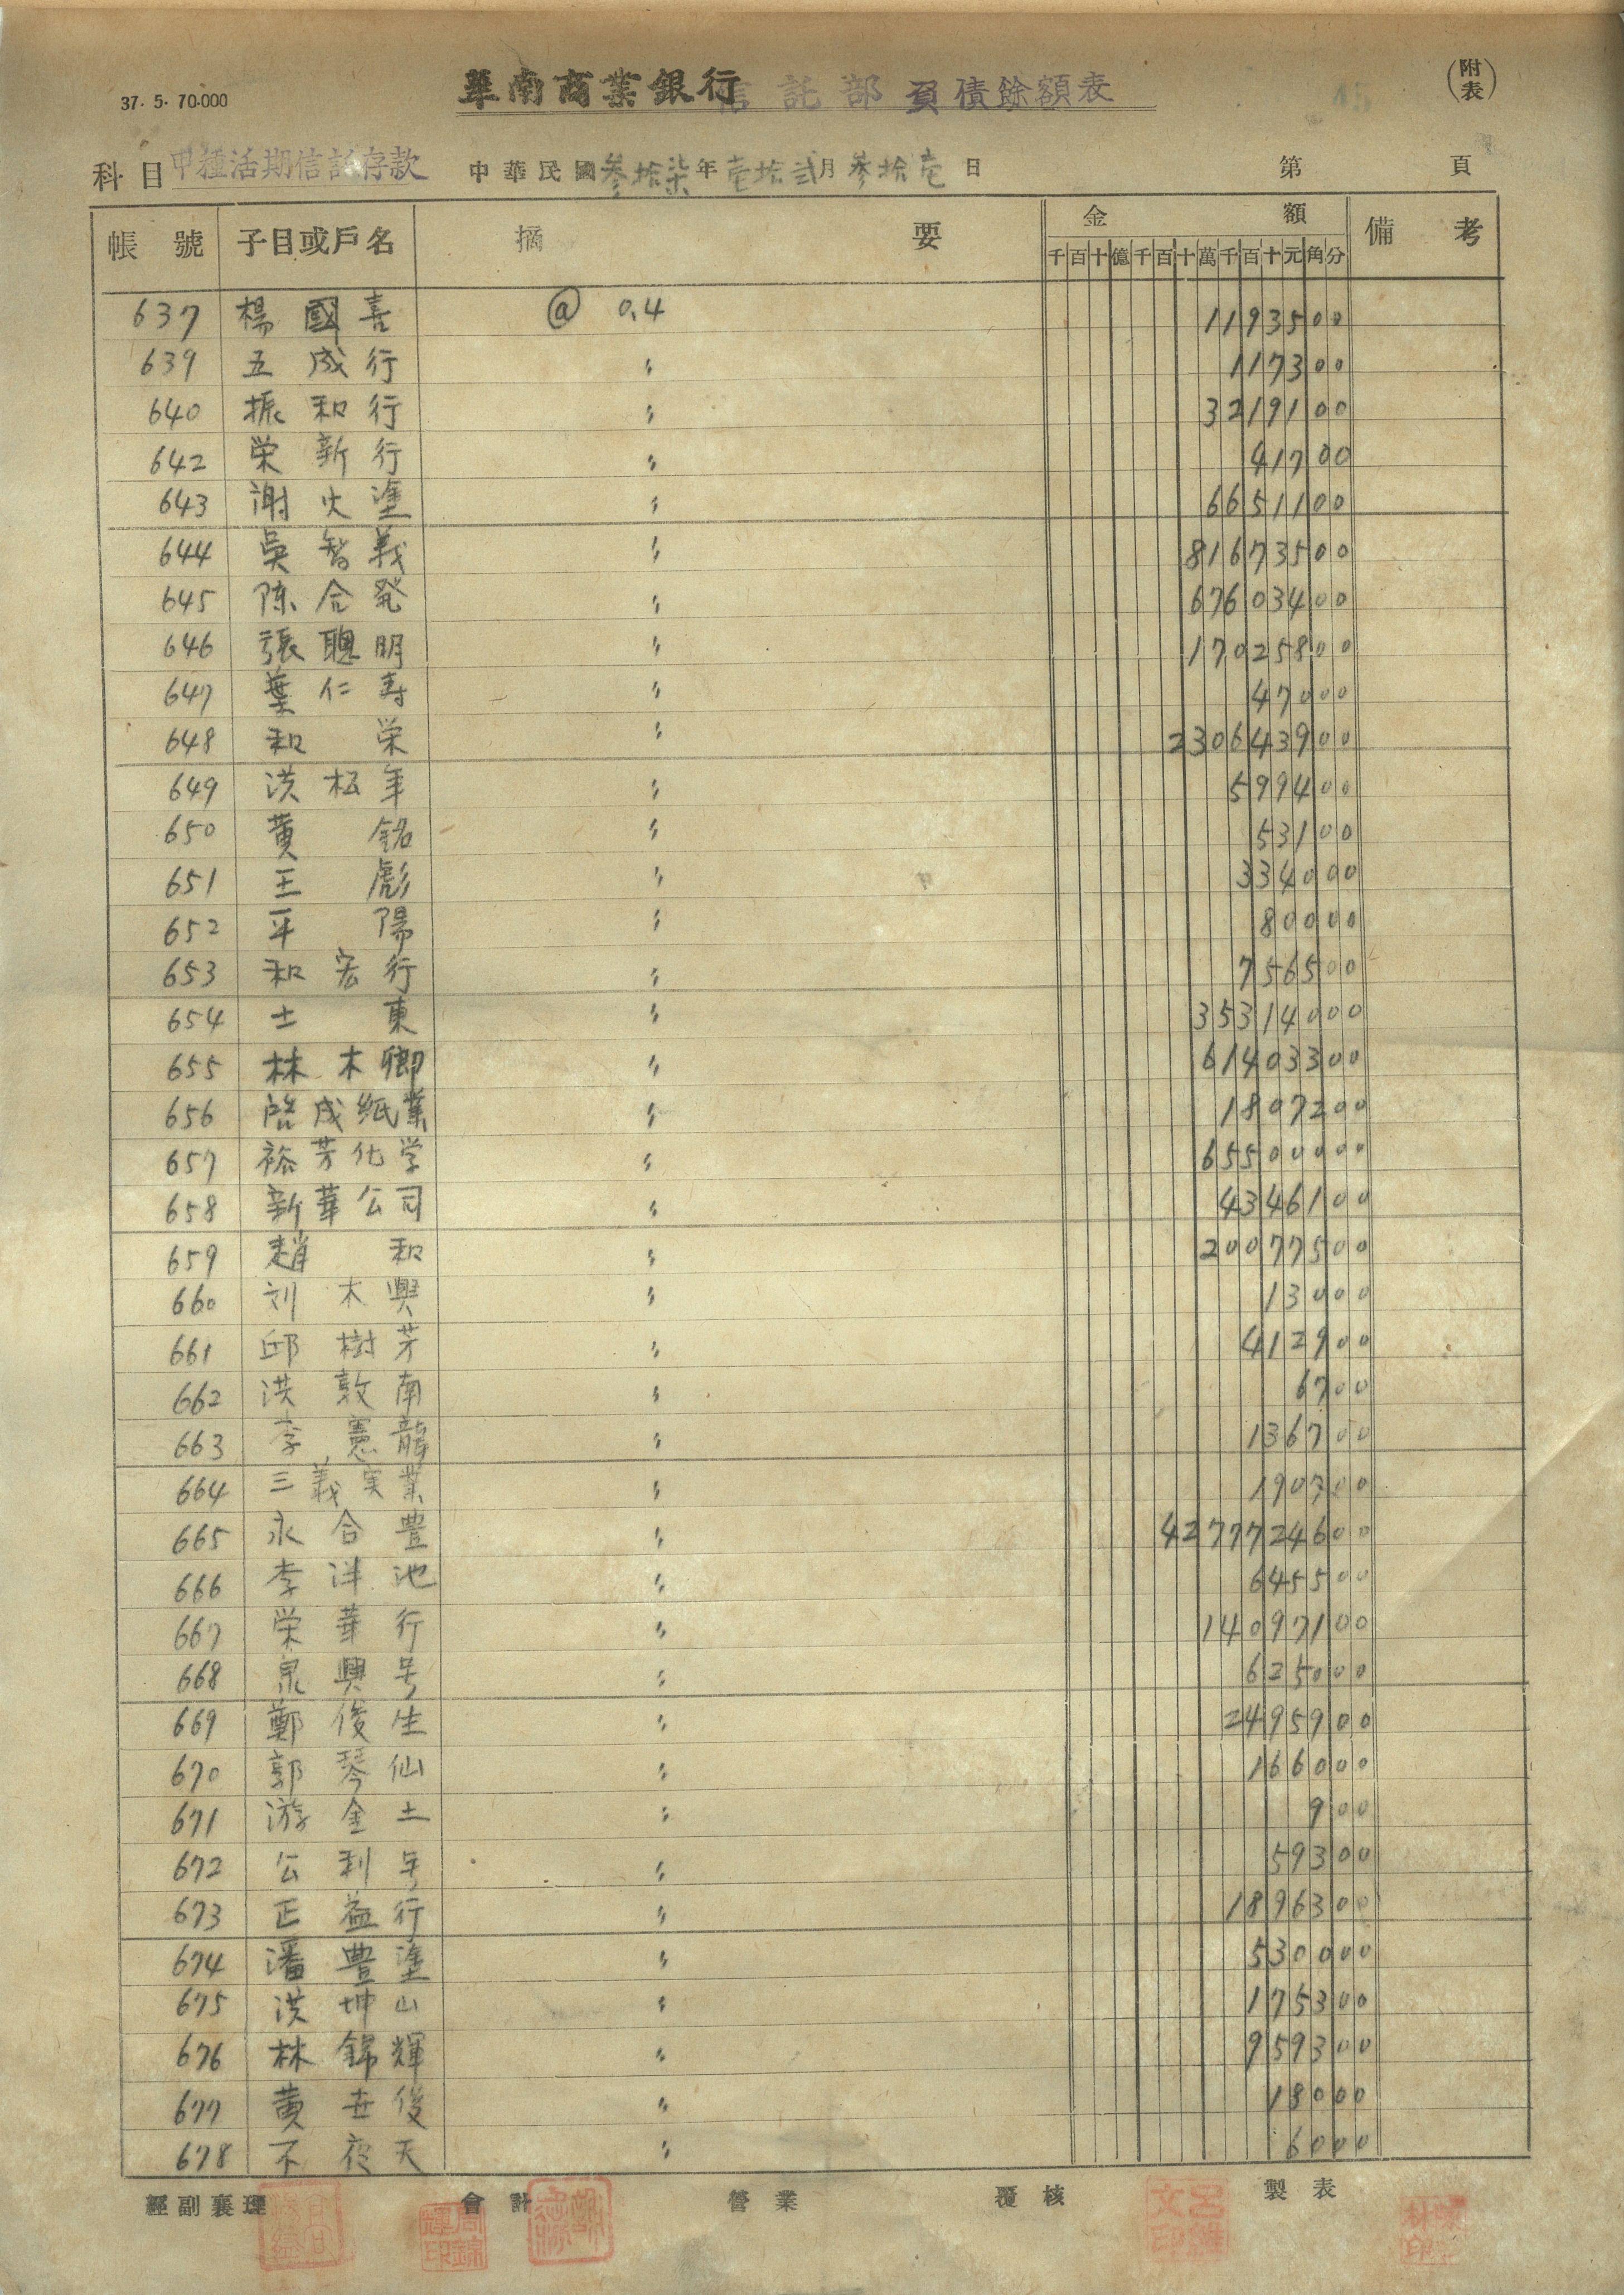 37. 5. 70.000
華南商業銀行信託部負債餘額表
45
(附表)
科目 甲種活期信託存款 中華民國叁拾柒年壹拾弍月叁拾壱日 第 頁
帳號 子目或戶名 摘要 金額 備考
千百十億千百十萬千百十元角分
637 楊國喜 @ 0.4 1193500
639 五成行 〃 117300
640 振和行 〃 3219100
642 栄新行 〃 41700
643 謝火塗 〃 6651100
644 吳智義 〃 81673500
645 陈合発 〃 67603400
646 張聰明 〃 17025800
647 葉仁寿 〃 47000
648 和栄 〃 230643900
649 洪松年 〃 599400
650 黄銘 〃 53100
651 王彪 〃 334000
652 平陽 〃 80000
653 和宏行 〃 756500
654 士東 〃 35314000
655 林木卿 〃 61403300
656 啓成紙業 〃 1807200
657 裕芳化学 〃 65500000
658 新華公司 〃 4346100
659 趙和 〃 20077500
660 刘木興 〃 13000
661 邱樹芳 〃 412900
662 洪敦南 〃 6700
663 李憲龍 〃 136700
664 三義実業 〃 190700
665 永合豊 〃 4277724600
666 李洋池 〃 645500
667 栄華行 〃 14097100
668 泉興号 〃 625000
669 鄭俊生 〃 2495900
670 郭琴仙 〃 166000
671 游金土 〃 900
672 公利号 〃 59300
673 正益行 〃 1896300
674 潘豊塗 〃 530000
675 洪坤山 〃 175300
676 林錦輝 〃 959300
677 黄世俊 〃 18000
678 不夜天 〃 6000
經副襄理 會計 營業 覆核 製表